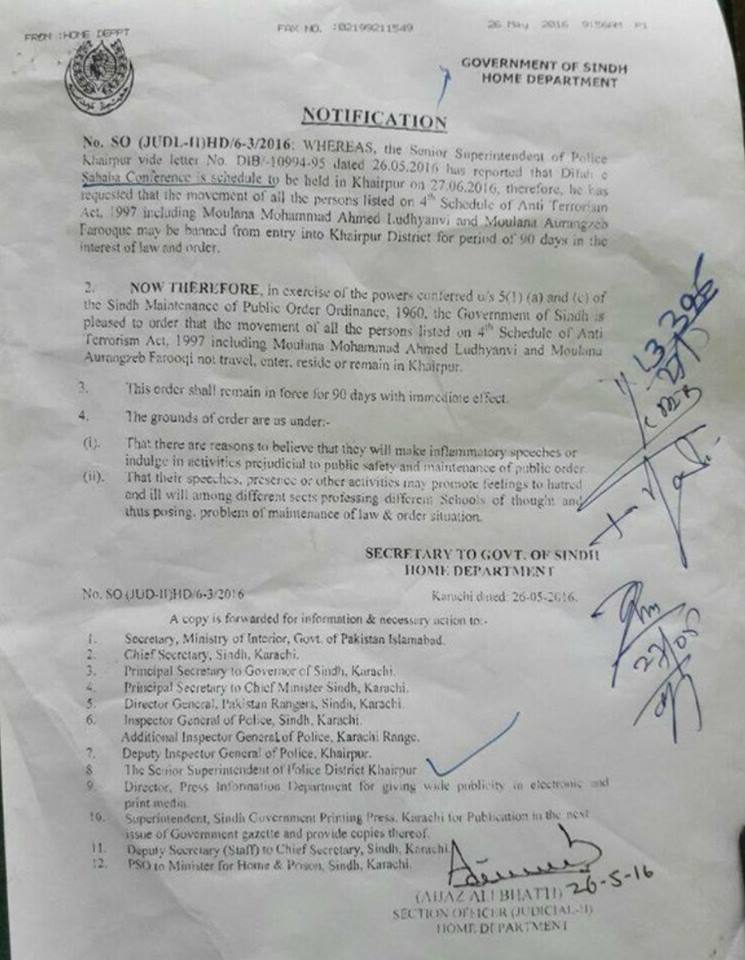 FROM :HOME DEPPT
FAX NO. :02199211549
26 May 2016 9:56AM P1
GOVERNMENT OF SINDH
HOME DEPARTMENT
NOTIFICATION
No. SO (JUDL-II)HD/6-3/2016: WHEREAS, the Senior Superintendent of Police
Khairpur vide letter No. DIB/-10994-95 dated 26.05.2016 has reported that Difah e
Sahaba Conference is schedule to be held in Khairpur on 27.06.2016, therefore, he has
requested that the movement of all the persons listed on 4th Schedule of Anti Terrorism
Act, 1997 including Moulana Mohammad Ahmed Ludhyanvi and Moulana Aurangzeb
Farooque may be banned from entry into Khairpur District for period of 90 days in the
interest of law and order.
2. NOW THEREFORE, in exercise of the powers conferred u/s 5(1) (a) and (c) of
the Sindh Maintenance of Public Order Ordinance, 1960, the Government of Sindh is
pleased to order that the movement of all the persons listed on 4th Schedule of Anti
Terrorism Act, 1997 including Moulana Mohammad Ahmed Ludhyanvi and Moulana
Aurangzeb Farooqi not travel, enter, reside or remain in Khairpur.
3. This order shall remain in force for 90 days with immediate effect.
4. The grounds of order are as under:-
(i). That there are reasons to believe that they will make inflammatory speeches or
indulge in activities prejudicial to public safety and maintenance of public order.
(ii). That their speeches, presence or other activities may promote feelings to hatred
and ill will among different sects professing different Schools of thought and
thus posing, problem of maintenance of law & order situation.
SECRETARY TO GOVT. OF SINDH
HOME DEPARTMENT
No. SO (JUD-II)HD/6-3/2016
Karachi dated: 26-05-2016.
A copy is forwarded for information & necessary action to:-
1. Secretary, Ministry of Interior, Govt. of Pakistan Islamabad.
2. Chief Secretary, Sindh, Karachi.
3. Principal Secretary to Governor of Sindh, Karachi.
4. Principal Secretary to Chief Minister Sindh, Karachi.
5. Director General, Pakistan Rangers, Sindh, Karachi.
6. Inspector General of Police, Sindh, Karachi.
Additional Inspector General of Police, Karachi Range.
7. Deputy Inspector General of Police, Khairpur.
8 The Senior Superintendent of Police District Khairpur
9. Director, Press Information Department for giving wide publicity in electronic and
print media.
10. Superintendent, Sindh Government Printing Press, Karachi for Publication in the next
issue of Government gazette and provide copies thereof.
11. Deputy Secretary (Staff) to Chief Secretary, Sindh, Karachi.
12. PSO to Minister for Home & Prison, Sindh, Karachi.
26-5-16
(AIJAZ ALI BHATTI)
SECTION OFFICER (JUDICIAL-II)
HOME DEPARTMENT